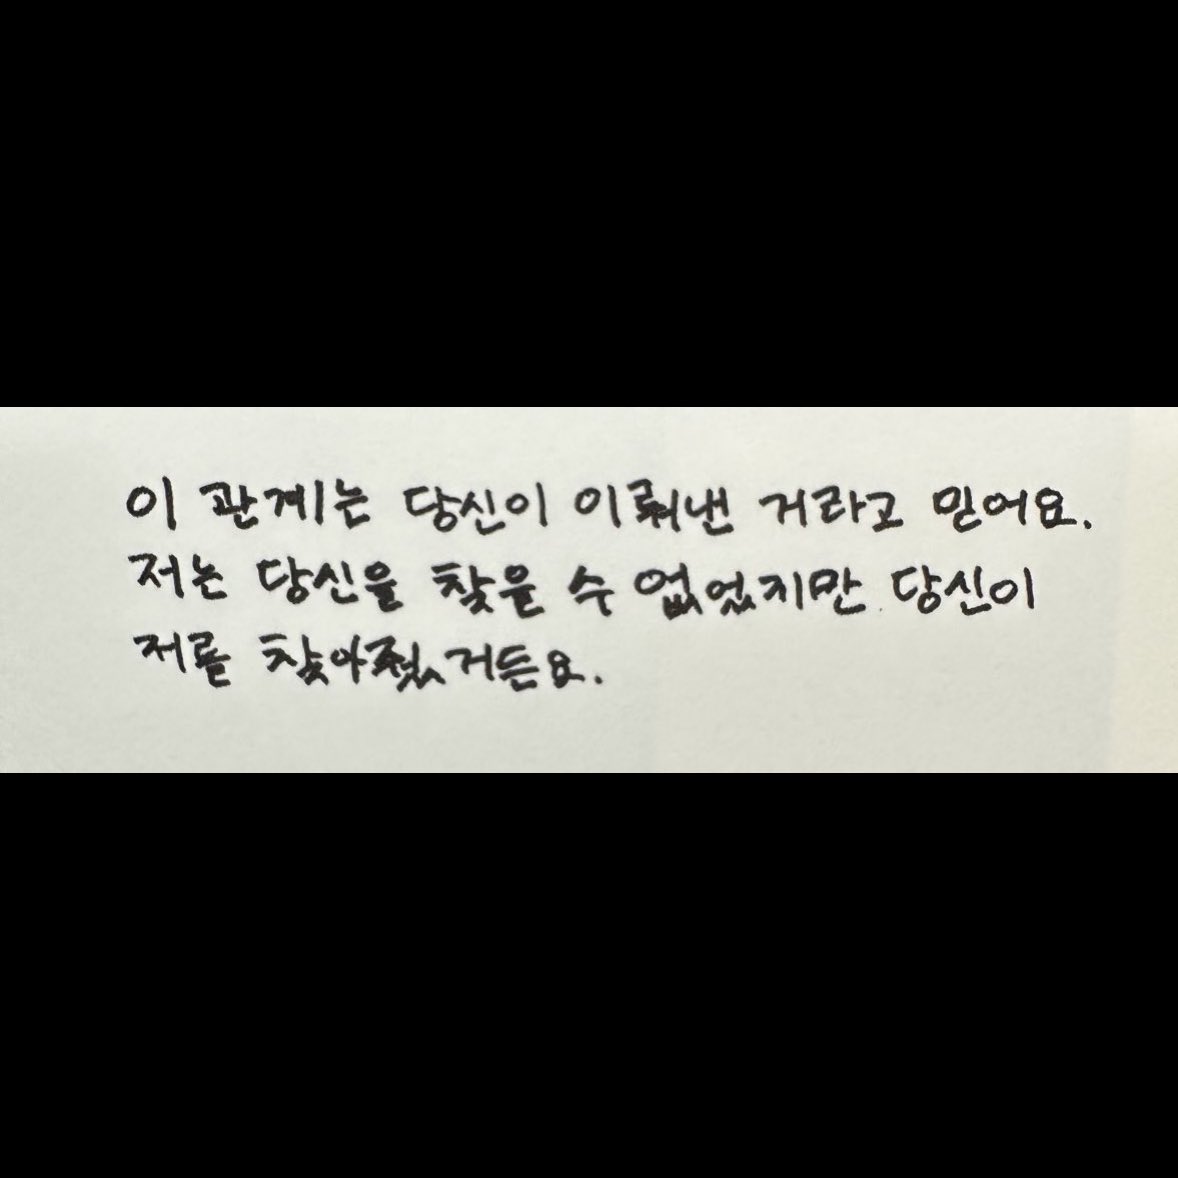 이 관계는 당신이 이뤄낸 거라고 믿어요.
저는 당신을 찾을 수 없었지만 당신이
저를 찾아줬거든요.